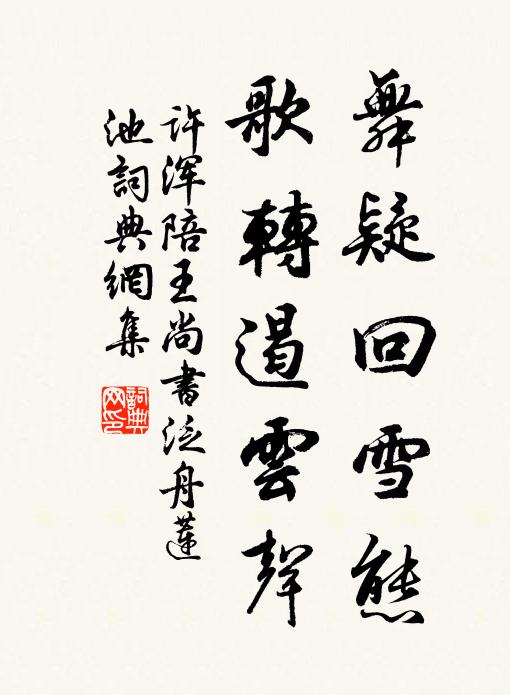 舞疑回雪態
歌轉遏雲聲
许浑陪王尚書泛舟蓮
池詞典網集
詞典
网印